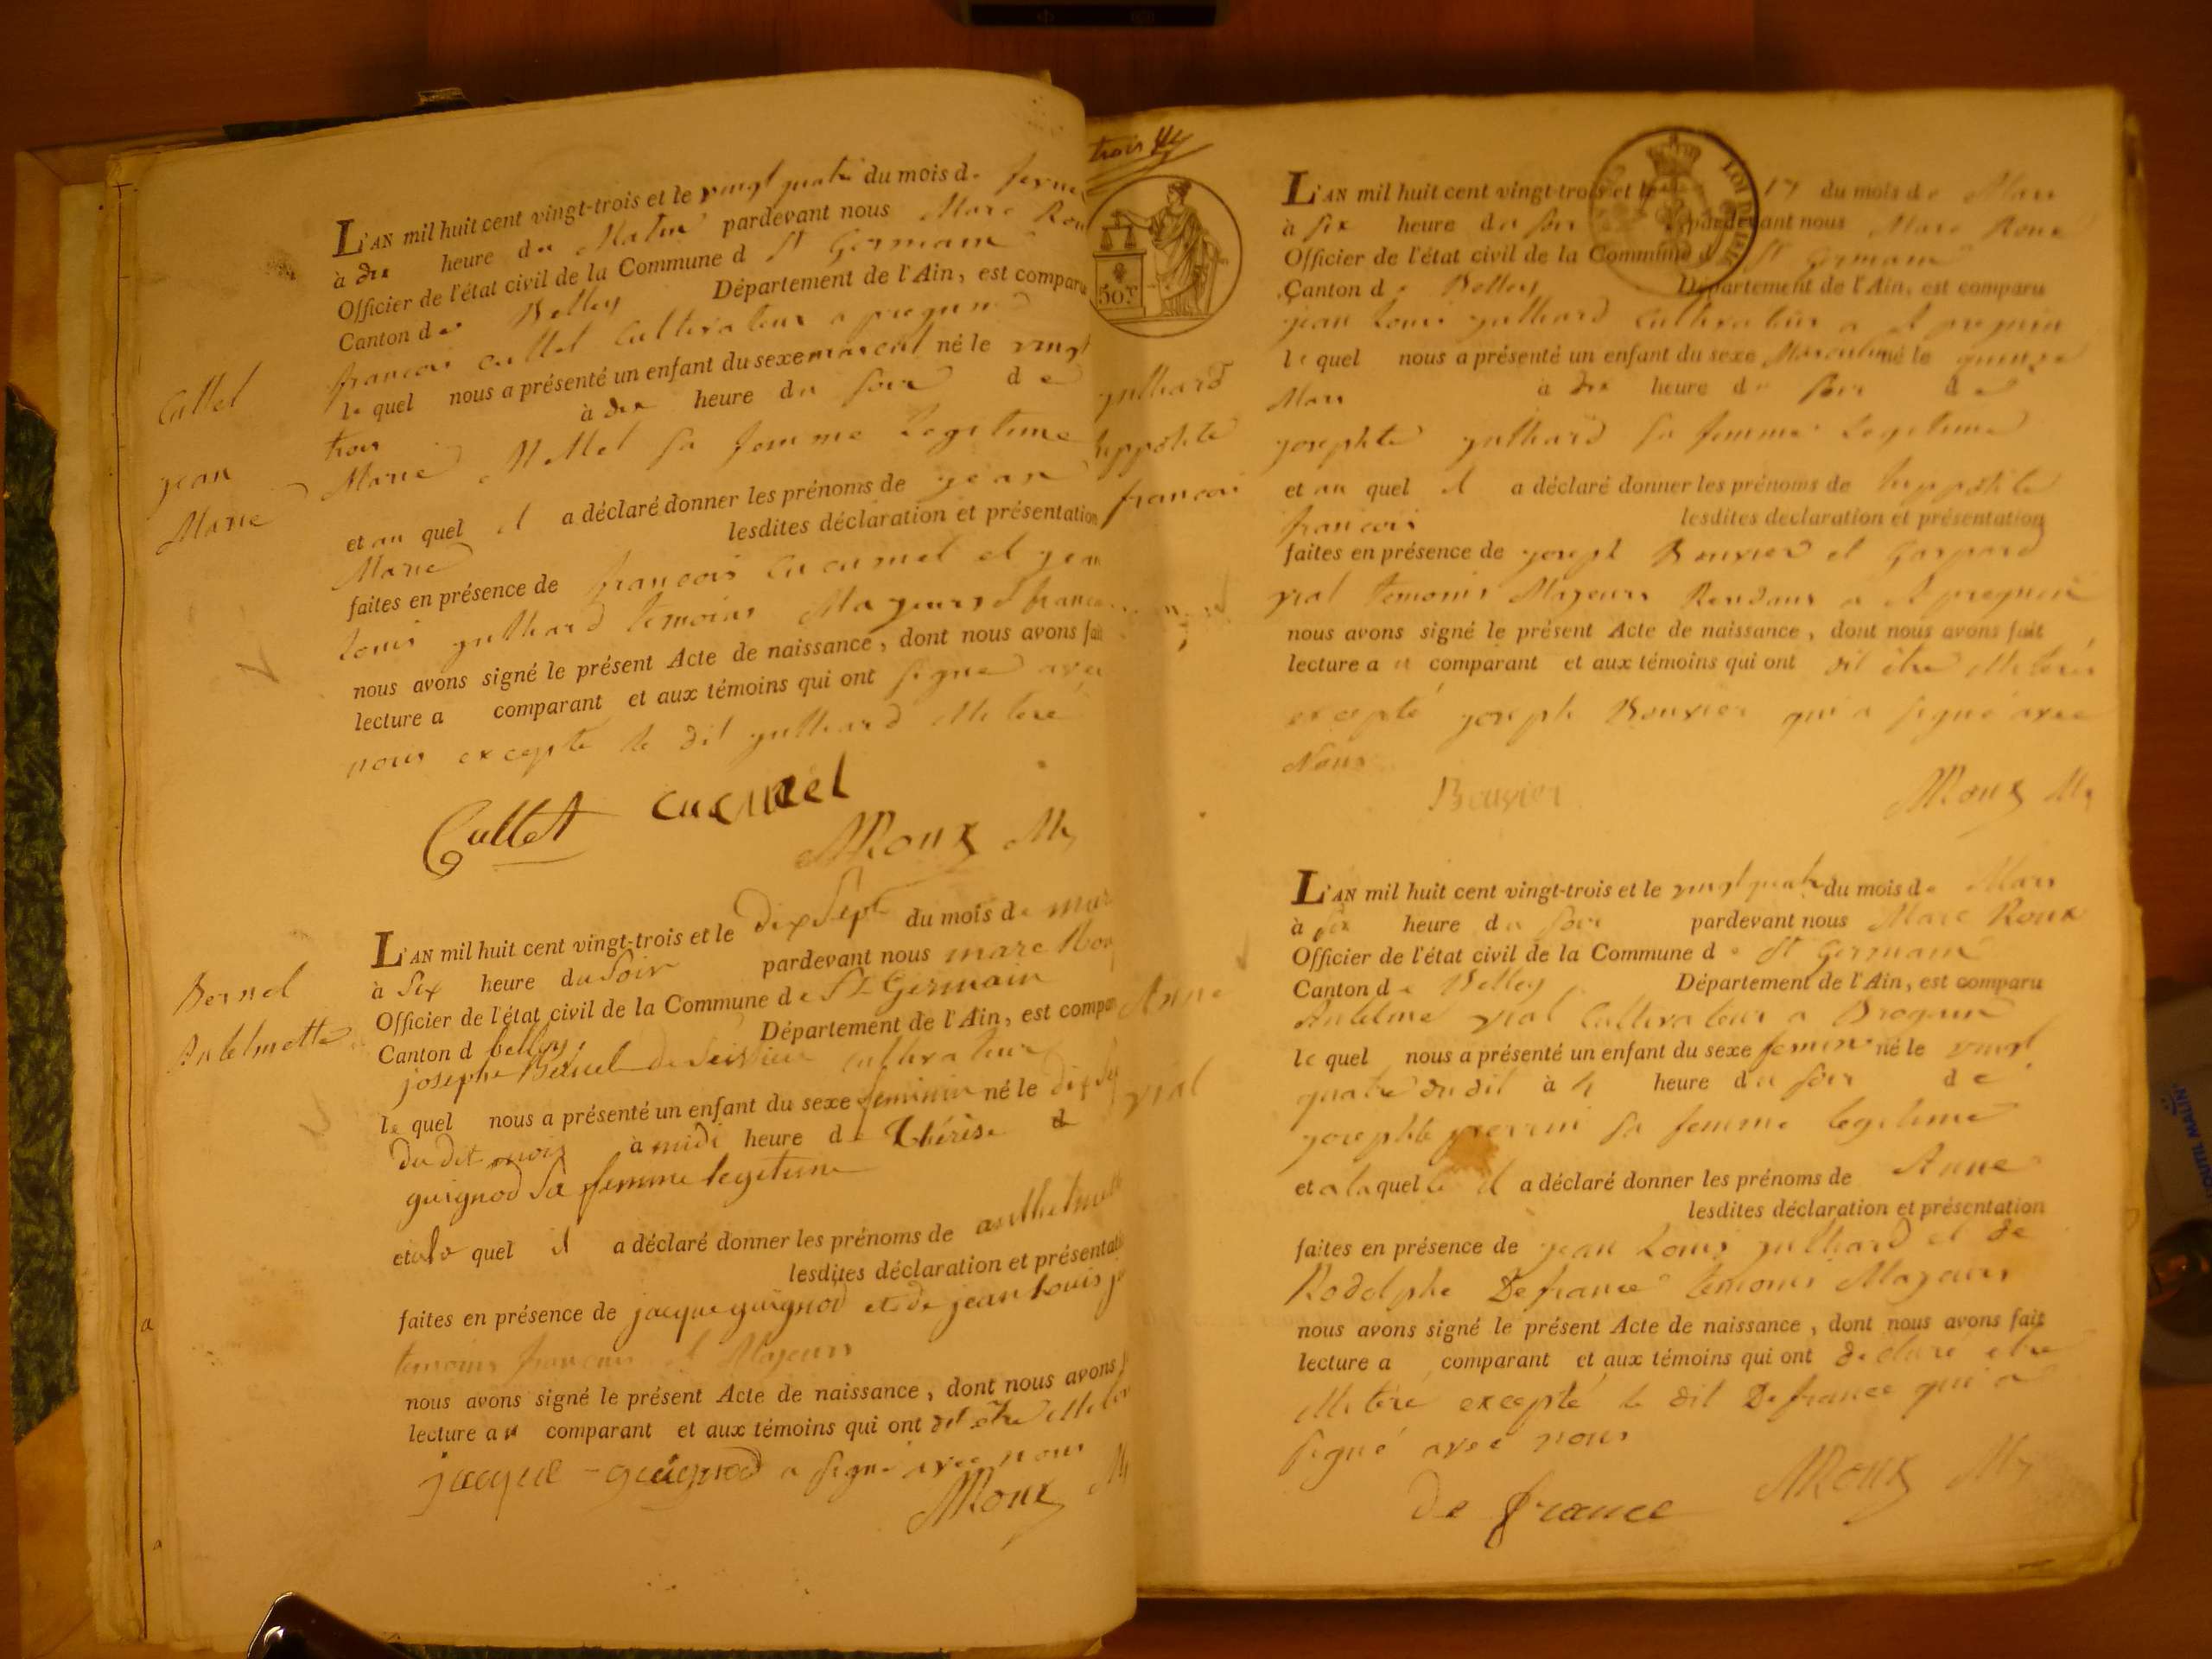 L'AN mil huit cent vingt-trois et le vingt quatre du mois de
à dix heure du Matin pardevant nous Marc Rou
Officier de l'état civil de la Commune d St Germain
Canton de Belley Département de l'Ain, est comparu
francois cullet Cultivateur a
le quel nous a présenté un enfant du sexe né le vingt
trois à dix heure du soir de
Marie sa femme Legitime
et au quel il a déclaré donner les prénoms de jean
Marie lesdites déclaration et présentation
faites en présence de francois cucumel et jean
Louis julliard temoins Majeurs
nous avons signé le présent Acte de naissance, dont nous avons fait
lecture a comparant et aux témoins qui ont signé avec
nous excepté le dit julliard
Cullet
jean
Marie
Cullet cucumel
MRoux
L'AN mil huit cent vingt-trois et le dix Sept du mois de mar
à Six heure du Soir pardevant nous marc Rou
Officier de l'état civil de la Commune de St Germain
Canton d belley Département de l'Ain, est compar
josephe cultivateur
le quel nous a présenté un enfant du sexe feminin né le dix se
du dit mois à midi heure de Thérèse
guignod Sa femme legitime
et quel il a déclaré donner les prénoms de
lesdites déclaration et présentati
faites en présence de jacque guignod et de jean louis
temoins Majeurs
nous avons signé le présent Acte de naissance, dont nous avons
lecture au comparant et aux témoins qui ont dit être
jacque - guignod a signé avec nous
MRoux
Bernel
Antelmette
trois
50c
L'AN mil huit cent vingt-trois et le 17 du mois de Mars
à six heure du soir pardevant nous Marc Roux
Officier de l'état civil de la Commune d St Germain
Canton de Belley Département de l'Ain, est comparu
jean Louis julliard Cultivateur a
le quel nous a présenté un enfant du sexe Masculin né le quinze
Mars à dix heure du soir de
josephte julliard sa femme Legitime
et au quel il a déclaré donner les prénoms de hippolite
francois lesdites déclaration et présentation
faites en présence de joseph Bouvier et Gaspard
vial temoins Majeurs
nous avons signé le présent Acte de naissance, dont nous avons fait
lecture a comparant et aux témoins qui ont dit être
excepté joseph Bouvier qui a signé avec
Nous
julliard
hippolite
francois
Bouvier MRoux
L'AN mil huit cent vingt-trois et le vingt quatre du mois de Mars
à six heure du soir pardevant nous Marc Roux
Officier de l'état civil de la Commune de St Germain
Canton de Belley Département de l'Ain, est comparu
Antelme vial Cultivateur a
le quel nous a présenté un enfant du sexe feminin né le vingt
quatre du dit à heure du soir de
josephte sa femme legitime
et a la quelle il a déclaré donner les prénoms de Anne
lesdites déclaration et présentation
faites en présence de jean Louis julliard et de
Rodolphe Defrance temoins Majeurs
nous avons signé le présent Acte de naissance, dont nous avons fait
lecture a comparant et aux témoins qui ont declaré etre
excepté le dit Defrance qui a
signé avec nous
Anne
vial
de france MRoux